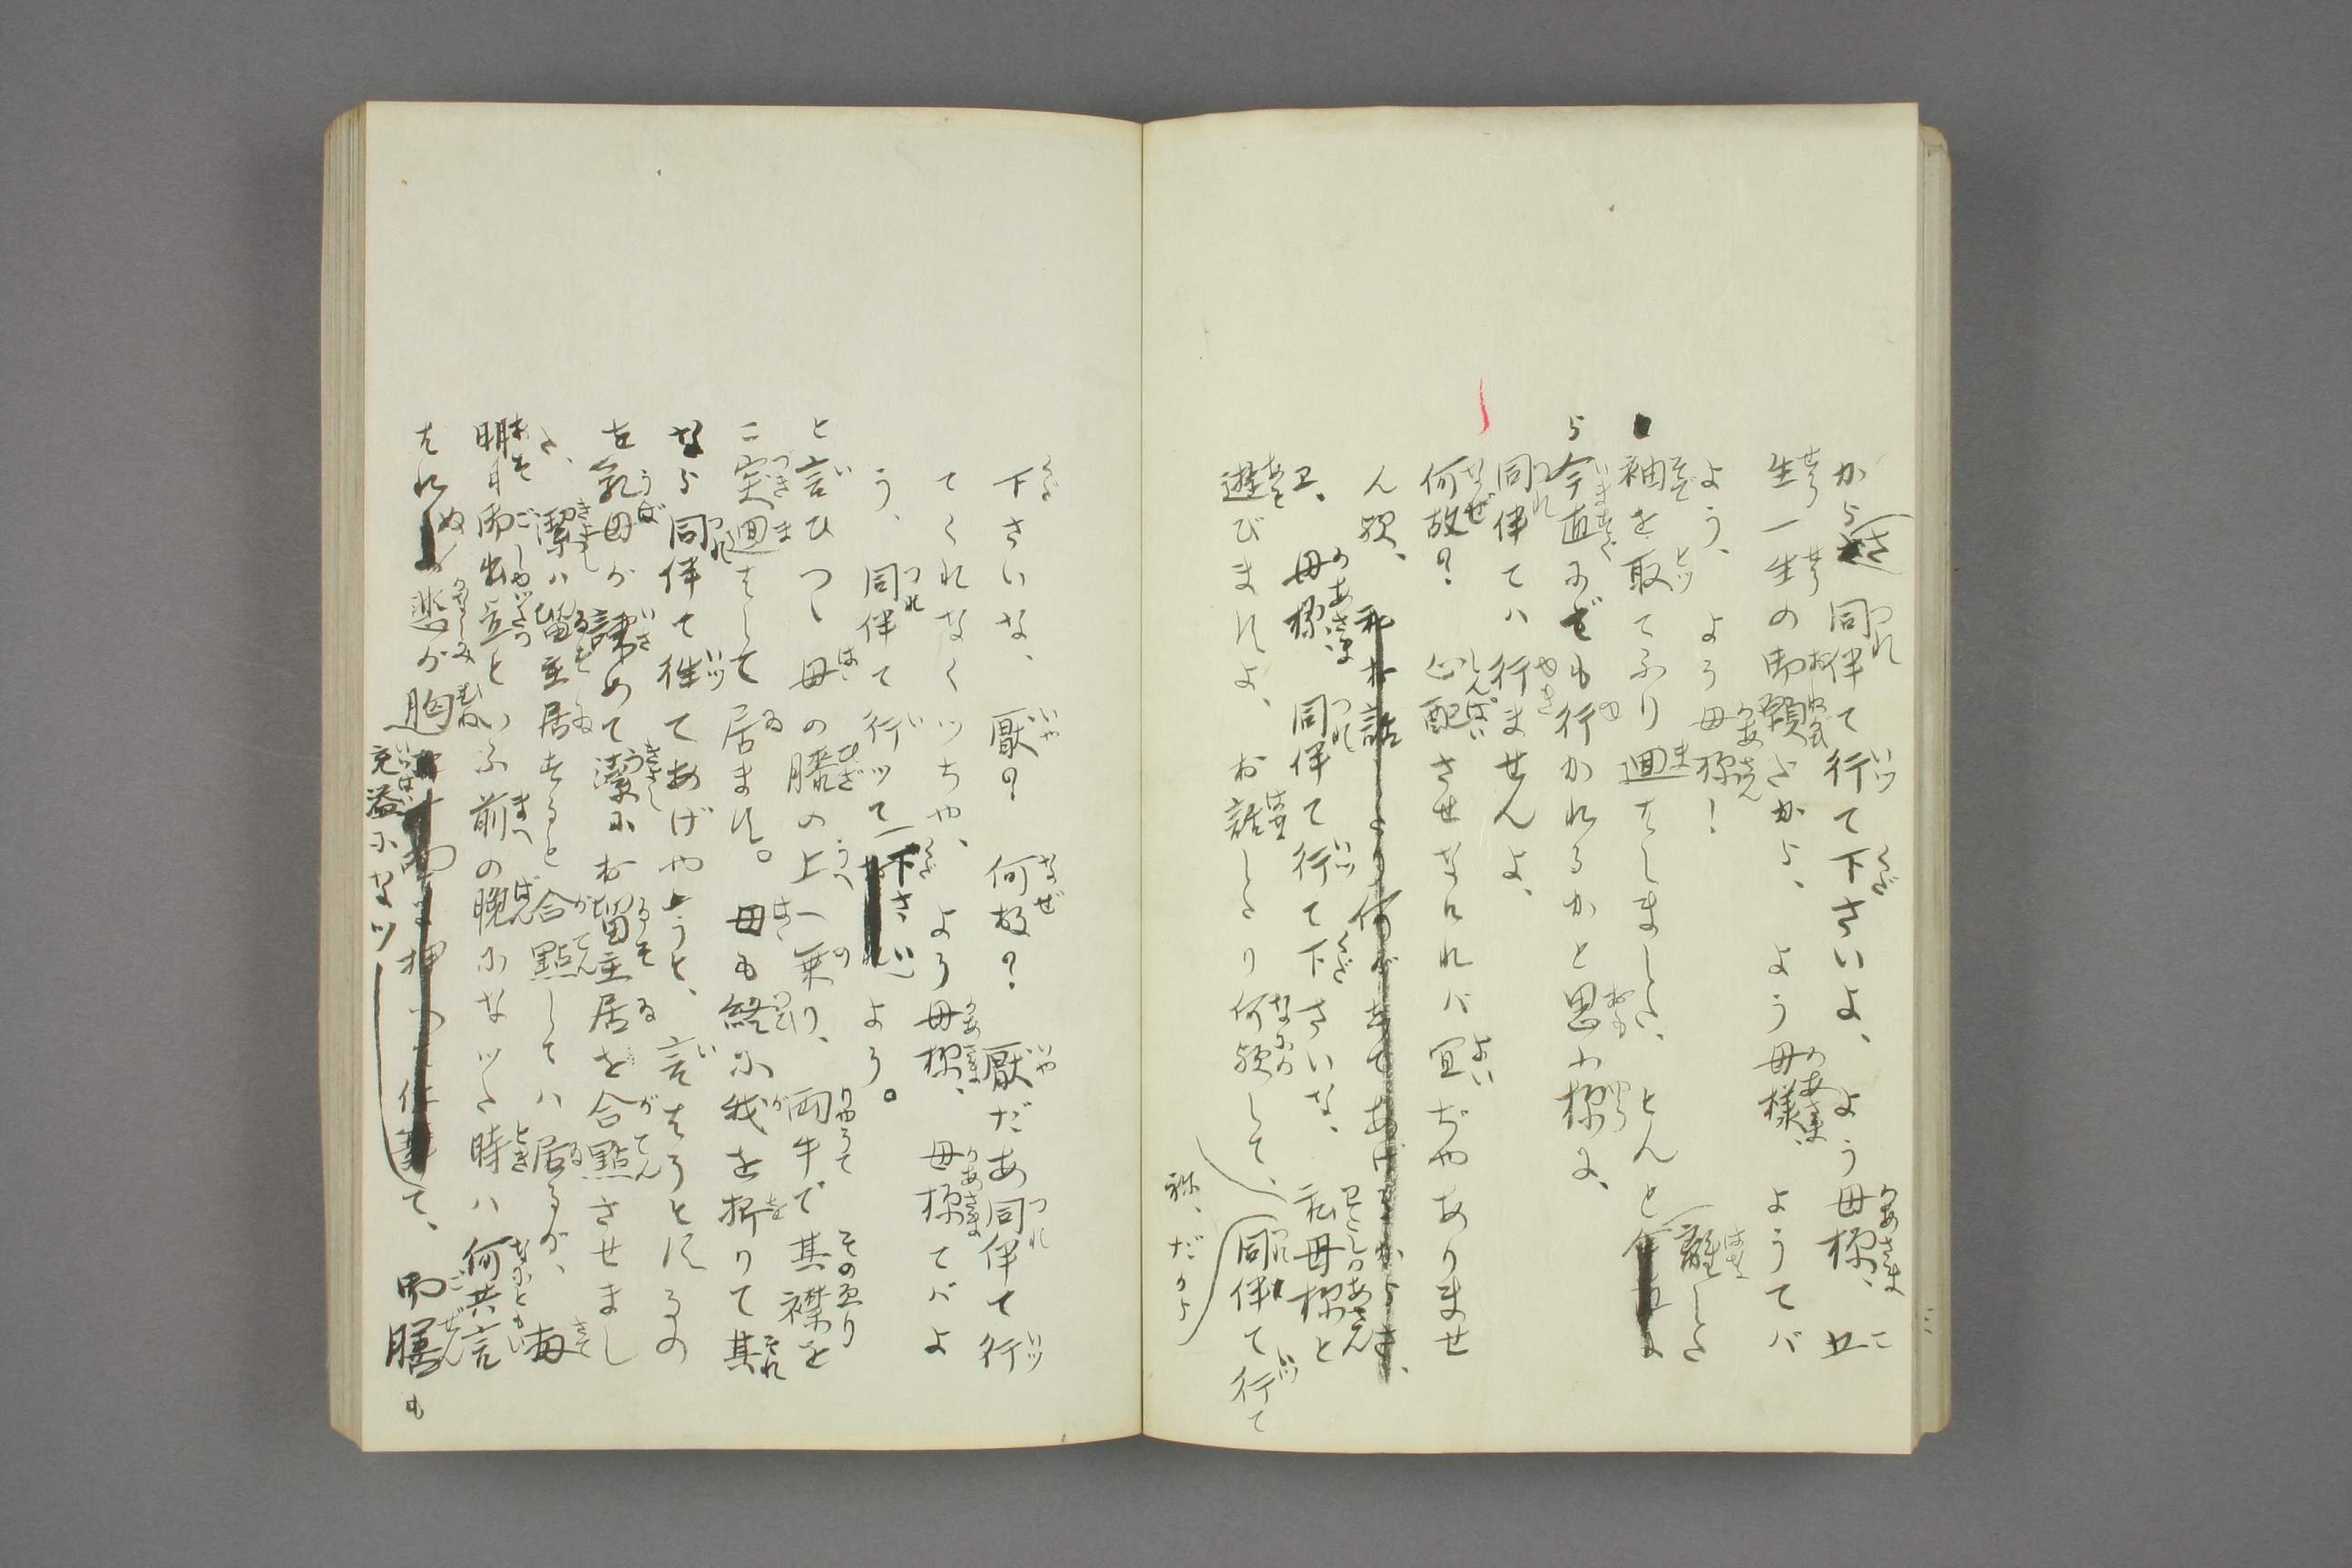 からさ同伴て行て下さいよ、よう母様、よ、二
生一生の御願だから、よう母様、ようてバ
よう、よう母様!
袖を取てふり廻はしました、とんと離した
ら今直にでも行かれるかと思ふ様に、
同伴てハ行ませんよ、
何故? 心配させなければ宜ぢやありませ
ん歟、
ヱ、母様 同伴て行て下さいな、私母様と
遊びますよ、お話したり何歟して、同伴て行て
ネ、だから
下さいな、厭? 何故? 厭だあ同伴て行
てくれなくッちや、よう母様、母様てバよ
う、同伴て行ッて下さいよう。
と言ひつゝ母の膝の上へ乗り、両手で其襟を
こ突廻はして居ます。母も終に我を折りて其
なら同伴て往てあげやうと、言はうとするの
を乳母が諫めて潔にお留主居を合點させまし
た、潔ハ留主居はると合點してハ居るが、毎
明日御出立といふ前の晩になッた時ハ何共言
はれぬ悲が胸充溢になッて、御膳も